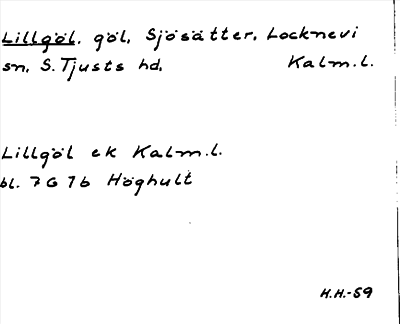 Lillgöl. göl, Sjösätter, Locknevi
sn, S. Tjusts hd, Kalm.l.
Lillgöl ek Kalm.l.
bl. 7 G 7 b Höghult
H.H.-59